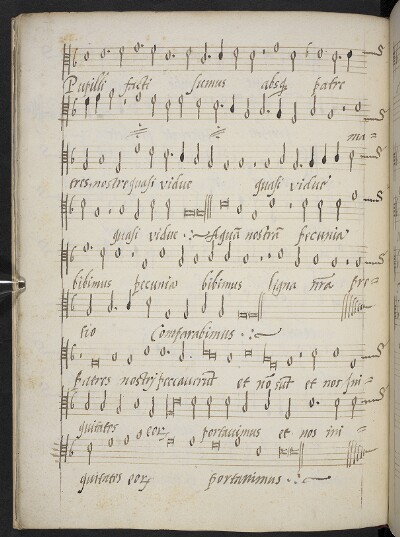 Pupilli facti sumus absq patre
ma=
tres nostre quasi vidue quasi vidue
quasi vidue Aquã nostrã pecunia
bibimus pecunia bibimus ligna nr̃a pre=
tio Comparabimus
patres nostri peccaverũt et nõ sũt et nos ini=
quitates eorꝝ portavimus et nos ini=
quitates eorꝝ portavimus